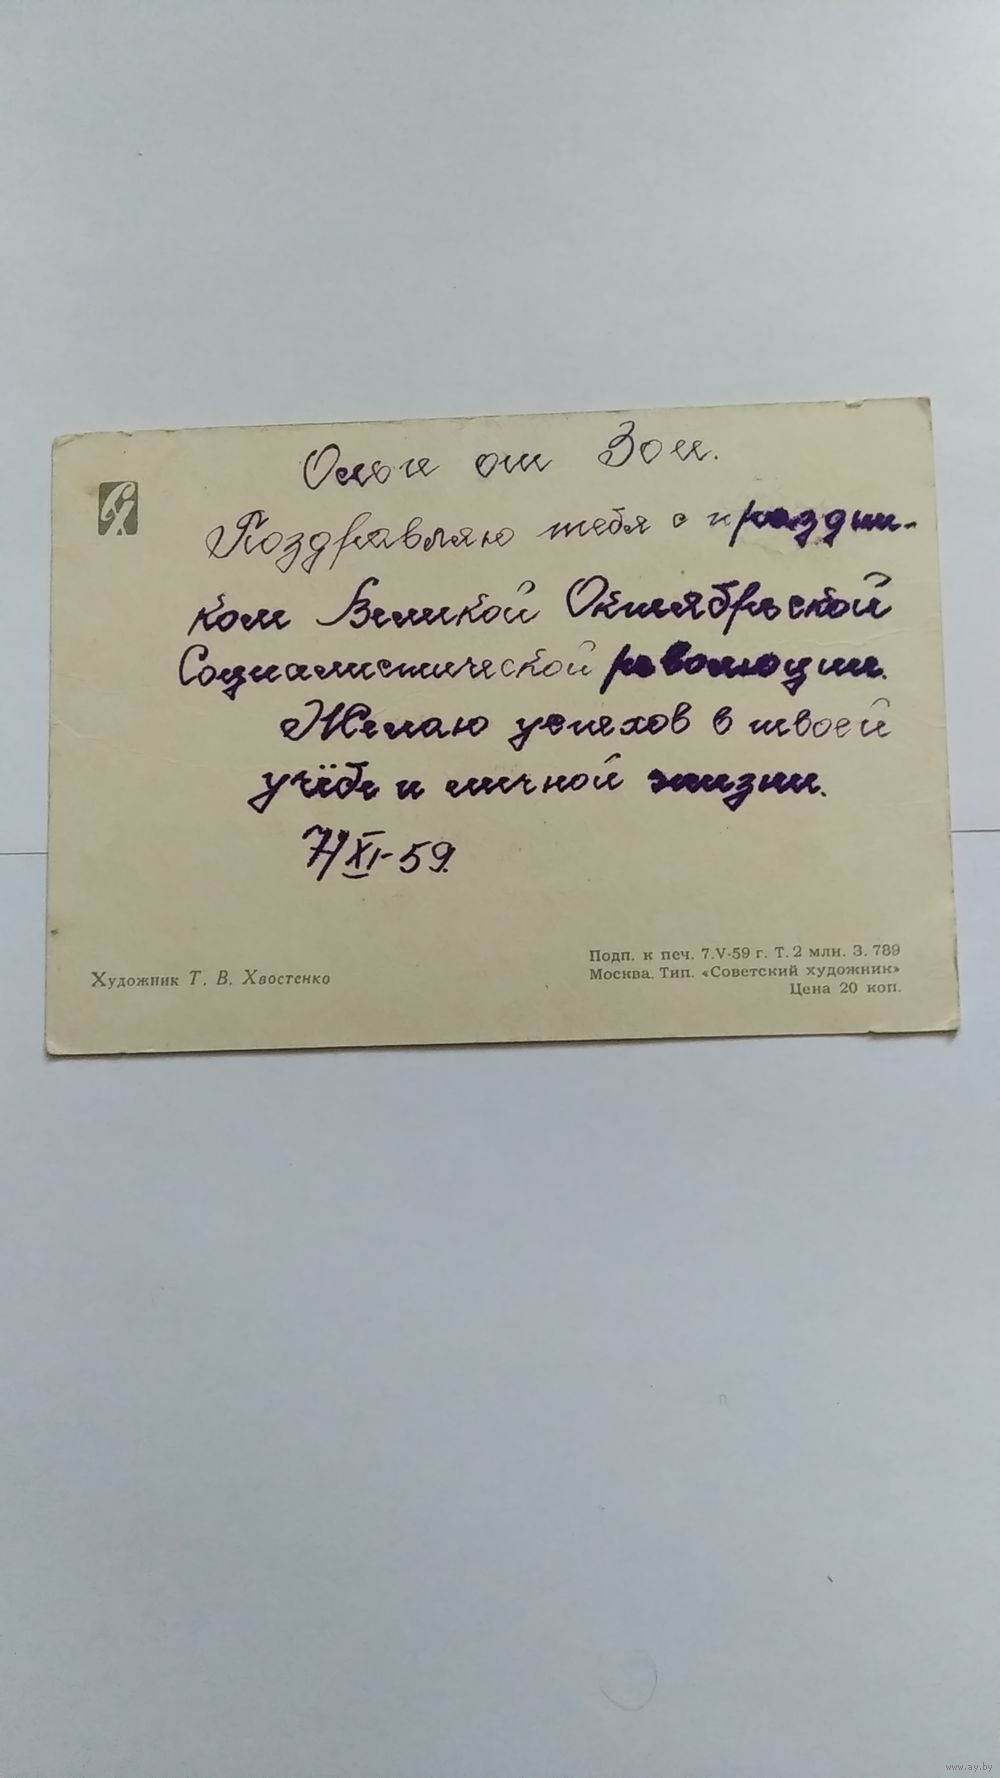 Ольги от Зои.
Поздравляю тебя с праздни-
ком Великой Октябрьской
Социалистической революции.
Желаю успехов в твоей
учёбе и личной жизни.
7/XI-59.
Подп. к печ. 7.V-59 г. Т. 2 млн. З. 789
Художник Т. В. Хвостенко
Москва. Тип. «Советский художник»
Цена 20 коп.
www.ay.by